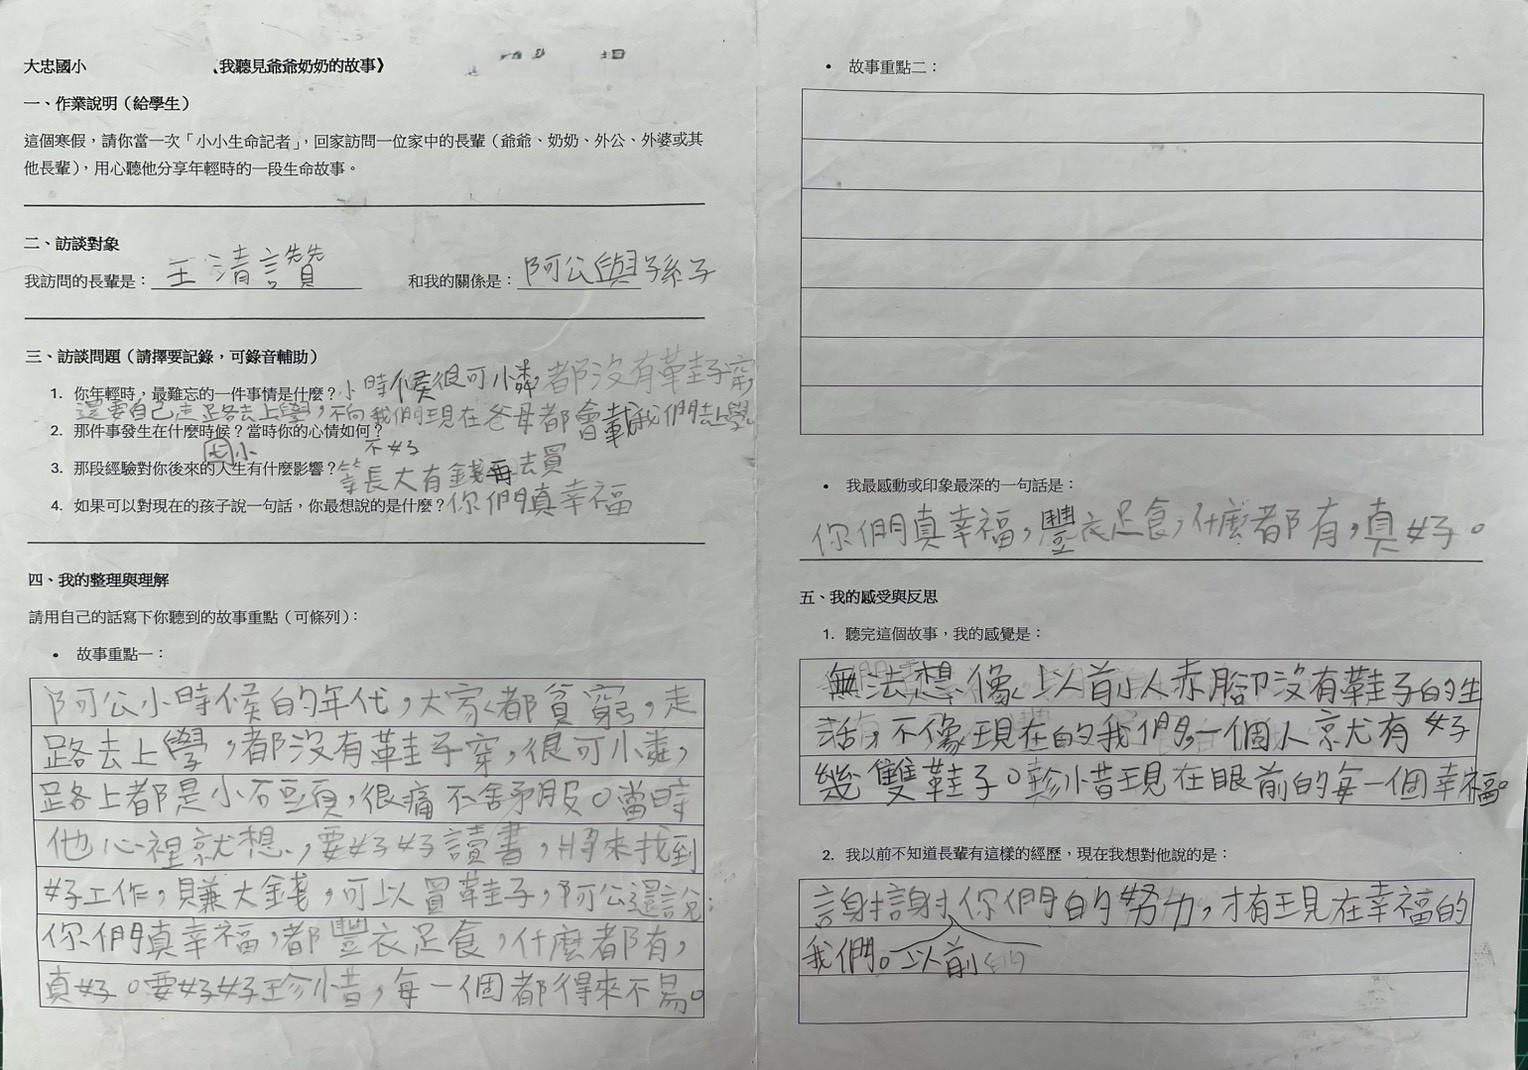 大忠國小 《我聽見爺爺奶奶的故事》
一、作業說明（給學生）
這個寒假，請你當一次「小小生命記者」，回家訪問一位家中的長輩（爺爺、奶奶、外公、外婆或其
他長輩），用心聽他分享年輕時的一段生命故事。
二、訪談對象
我訪問的長輩是：王清讚 和我的關係是：阿公與孫子
三、訪談問題（請擇要記錄，可錄音輔助）
1. 你年輕時，最難忘的一件事情是什麼？小時候很可憐，都沒有鞋子穿，
還要自己走路去上學，不向我們現在爸母都會載我們去上學。
2. 那件事發生在什麼時候？當時你的心情如何？
國小 不好
3. 那段經驗對你後來的人生有什麼影響？等長大有錢再去買
4. 如果可以對現在的孩子說一句話，你最想說的是什麼？你們真幸福
四、我的整理與理解
請用自己的話寫下你聽到的故事重點（可條列）：
• 故事重點一：
阿公小時候的年代，大家都貧窮，走
路去上學，都沒有鞋子穿，很可憐，
路上都是小石頭，很痛不舍服。當時
他心裡就想，要好好讀書，將來找到
好工作，賺大錢，可以買鞋子，阿公還說：
你們真幸福，都豐衣足食，什麼都有，
真好。要好好珍惜，每一個都得來不易。
• 故事重點二：
• 我最感動或印象最深的一句話是：
你們真幸福，豐衣足食，什麼都有，真好。
五、我的感受與反思
1. 聽完這個故事，我的感覺是：
無法想像以前人赤腳沒有鞋子的生
活，不像現在的我們，一個人就有好
幾雙鞋子。珍惜現在眼前的每一個幸福。
2. 我以前不知道長輩有這樣的經歷，現在我想對他說的是：
謝謝你們的努力，才有現在幸福的
我們。以前